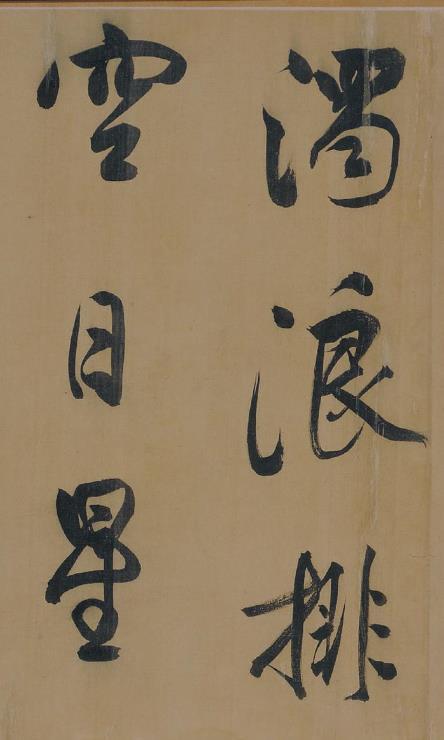 濁浪排
空日星